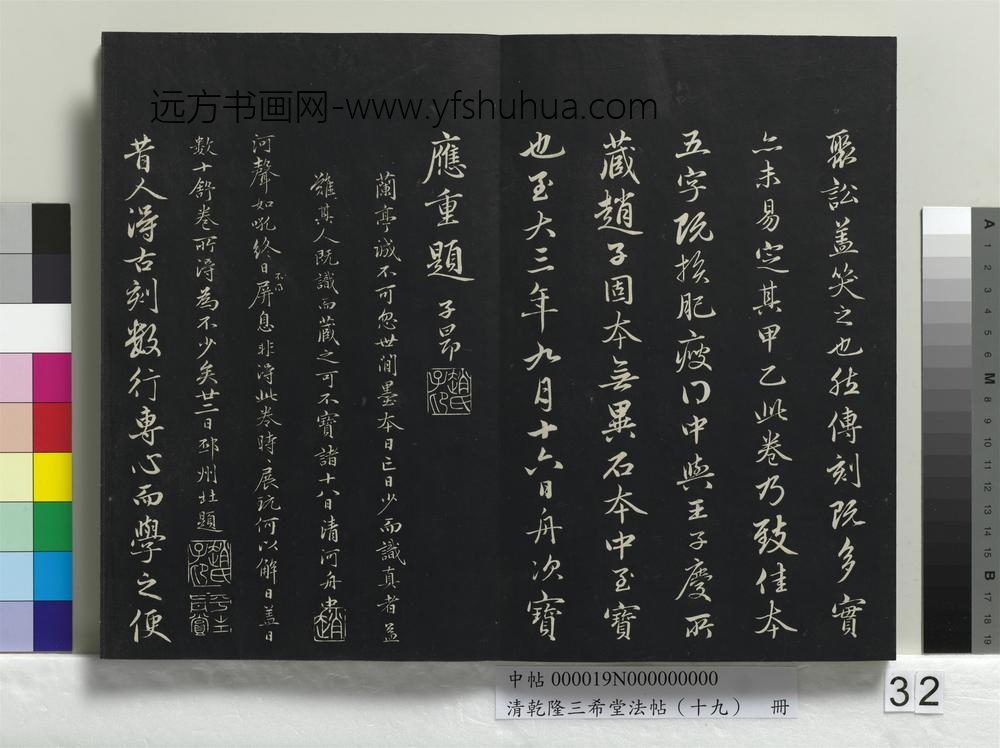 远方书画网-www.yfshuhua.com
聚訟盖笑之也然傳刻既多實
亦未易定其甲乙此卷乃致佳本
五字既損肥瘦得中與王子慶所
藏趙子固本無異石本中至寶
也至大三年九月十六日舟次寶
應重題 子昂
趙氏子昂
蘭亭誠不可忽世間墨本日亡日少而識真者益
難其人既識而藏之可不寶諸十八日清河舟中
趙
河聲如吼終日屏息非得此卷時時展玩何以解日盖日
數十舒卷所得為不少矣廿二日邳州北題
趙氏子昂
昔人得古刻數行專心而學之便
中帖 000019N000000000
清乾隆三希堂法帖（十九） 冊
32
A 1 2 3 4 5 6 M 8 9 10 11 12 13 14 15 B 17 18 19